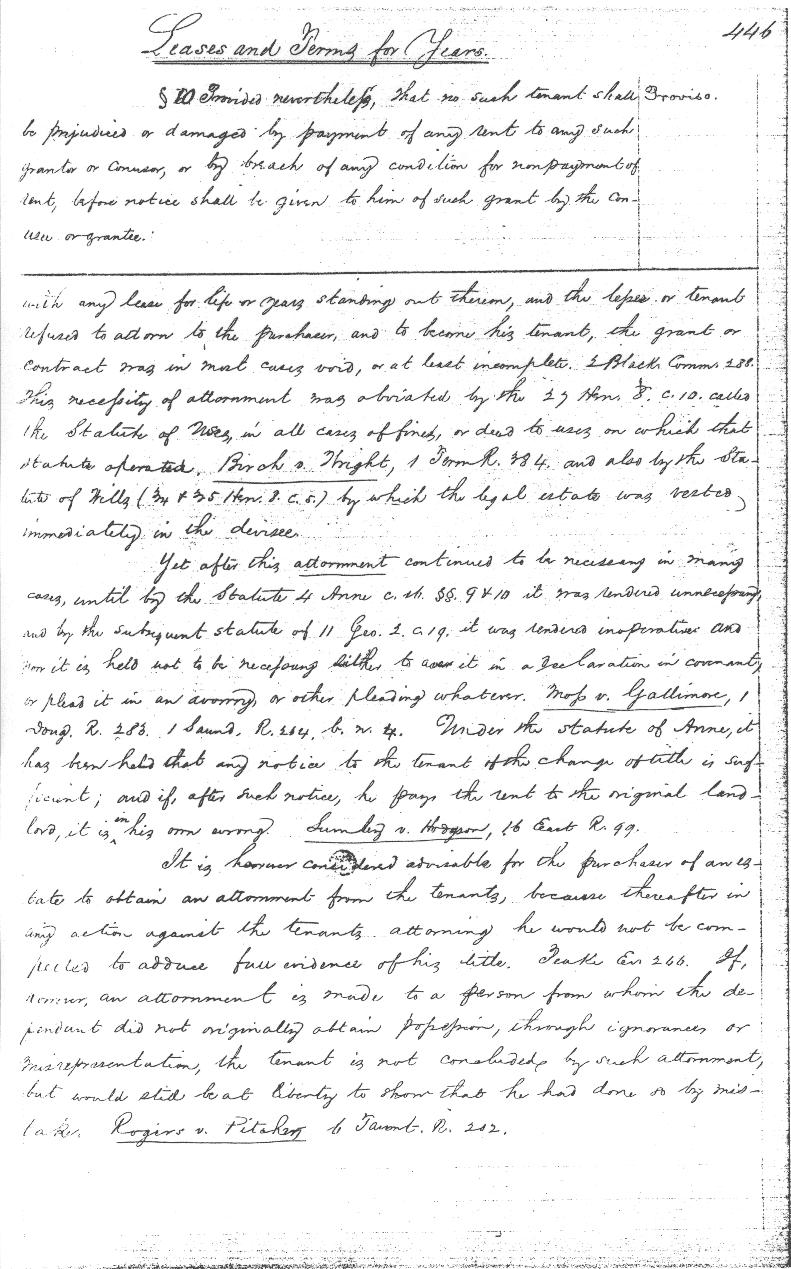 446
Leases and Terms for Years.
§ 10 Provided nevertheless, that no such tenant shall
Proviso.
be prejudiced or damaged by payment of any rent to any such
grantor or conusor, or by breach of any condition for nonpayment of
rent, before notice shall be given to him of such grant by the con-
usee or grantee.
with any lease for life or years standing out thereon, and the lessee or tenant
refused to attorn to the purchaser, and to become his tenant, the grant or
contract was in most cases void, or at least incomplete. 2 Black. Comm. 288.
This necessity of attornment was obviated by the 27 Hen. 8. c. 10. called
the Statute of Uses, in all cases of fines, or deed to uses on which that
statute operated. Birch v. Wright, 1 Term R. 384. and also by the Sta-
tute of Wills (34 & 35 Hen. 8. c. 5.) by which the legal estate was vested
immediately in the devisee.
Yet after this attornment continued to be necessary in many
cases, until by the Statute 4 Anne c. 16. §§. 9 & 10 it was rendered unnecessary,
and by the subsequent statute of 11 Geo. 2. c. 19. it was rendered inoperative and
now it is held not to be necessary either to aver it in a Declaration in covenant,
or plead it in an avowry, or other pleading whatever. Moss v. Gallimore, 1
Doug. R. 283. 1 Saund. R. 234. b. n. 4. Under the statute of Anne, it
has been held that any notice to the tenant of the change of title is suf-
ficient; and if, after such notice, he pays the rent to the original land-
lord, it is in his own wrong. Lumley v. Hodgson, 16 East R. 99.
It is however considered advisable for the purchaser of an es-
tate to obtain an attornment from the tenants, because thereafter in
any action against the tenants attorning he would not be com-
pelled to adduce full evidence of his title. Peake Ev. 266. If,
however, an attornment is made to a person from whom the de-
pendant did not originally obtain possession, through ignorance or
misrepresentation, the tenant is not concluded by such attornment,
but would still be at liberty to show that he had done so by mis-
take. Rogers v. Pitcher, 6 Taunt. R. 202.